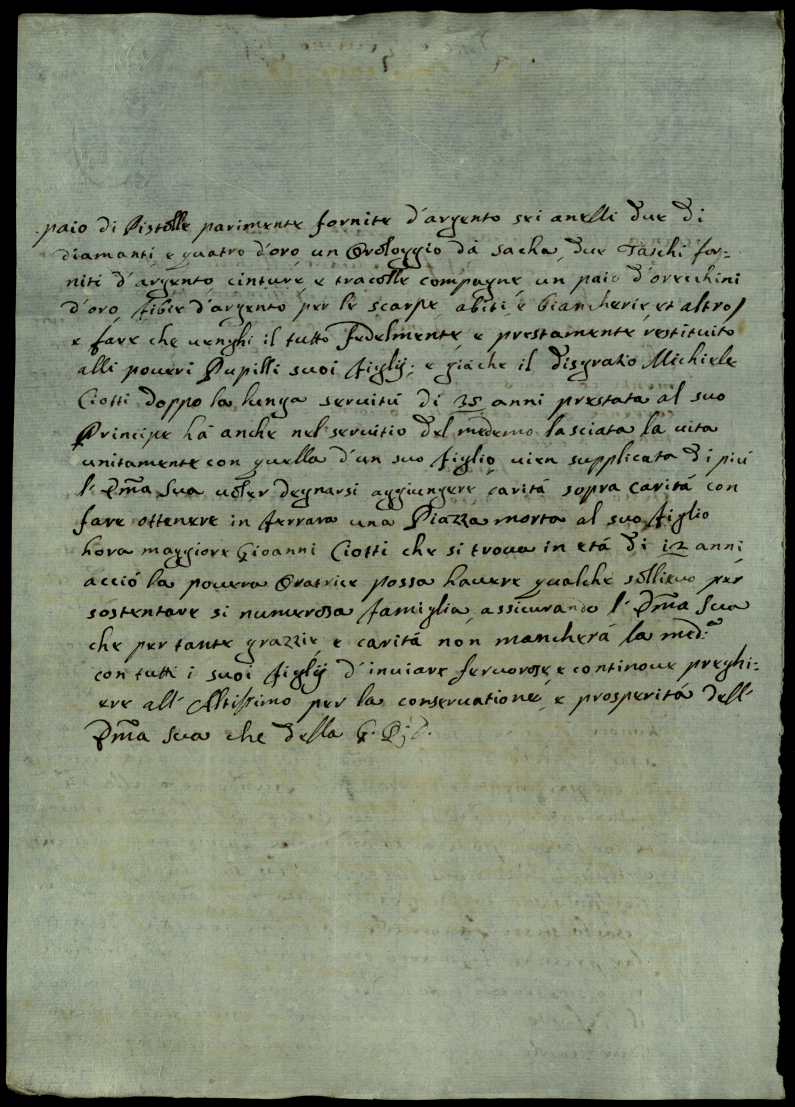 paio di Pistolle parimente fornite d'argento sei anelli due di
diamanti e quatro d'oro un Orologgio dà sacha, due Taschi for=
niti d'argento, cinture, e tracolle compagne un paio d'orecchini
d'oro, fibie d'argento per le scarpe, abiti, e biancherie, et altro,
e fare che venghi il tutto Fedelmente, e prestamente restituito
alli poveri Pupilli suoi figlij; e giache il disgrazio Michiele
Ciotti doppo la lunga servitù di 35 anni prestata al suo
Principe hà anche nel servitio del medemo lasciata la vita
unitamente con quella d'un suo figlio, vien supplicata di più
l'Em̃a Sua voler degnarsi aggiungere carità sopra carità con
fare ottenere in ferrara una Piazza morta al suo figlio
hora maggiore Gioanni Ciotti che si trova in età di 12 anni
acciò la povera Oratrice possa havere qualche sollievo per
sostentare si numerosa famiglia, assicurando l'Em̃a Sua
che per tante grazzie, e carità non mancherà la med.ª
con tutti i suoi figlij d'inviare fervorose, e continove preghi=
ere all'Altissimo per la conservatione, e prosperità dell'
Em̃a Sua che della G.